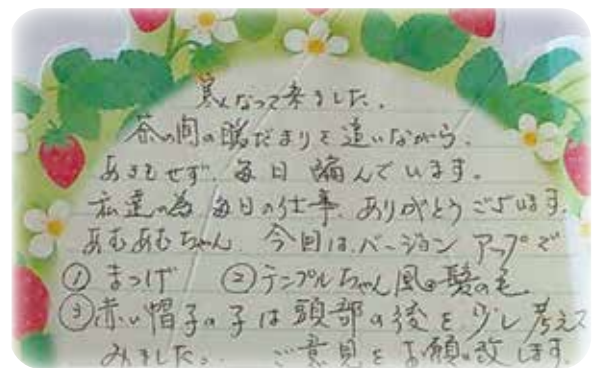 寒くなって来ました。
茶の間の陽だまりを追いながら、
あきもせず、毎日編んでいます。
私達の為、毎日の仕事、ありがとうございます。
あむあむちゃん 今回は、バージョン アップで
① まつげ ②テンプルちゃん風の髪の毛
③赤い帽子の子は頭部の後を少し考えて
みました。 ご意見をお願い致します。